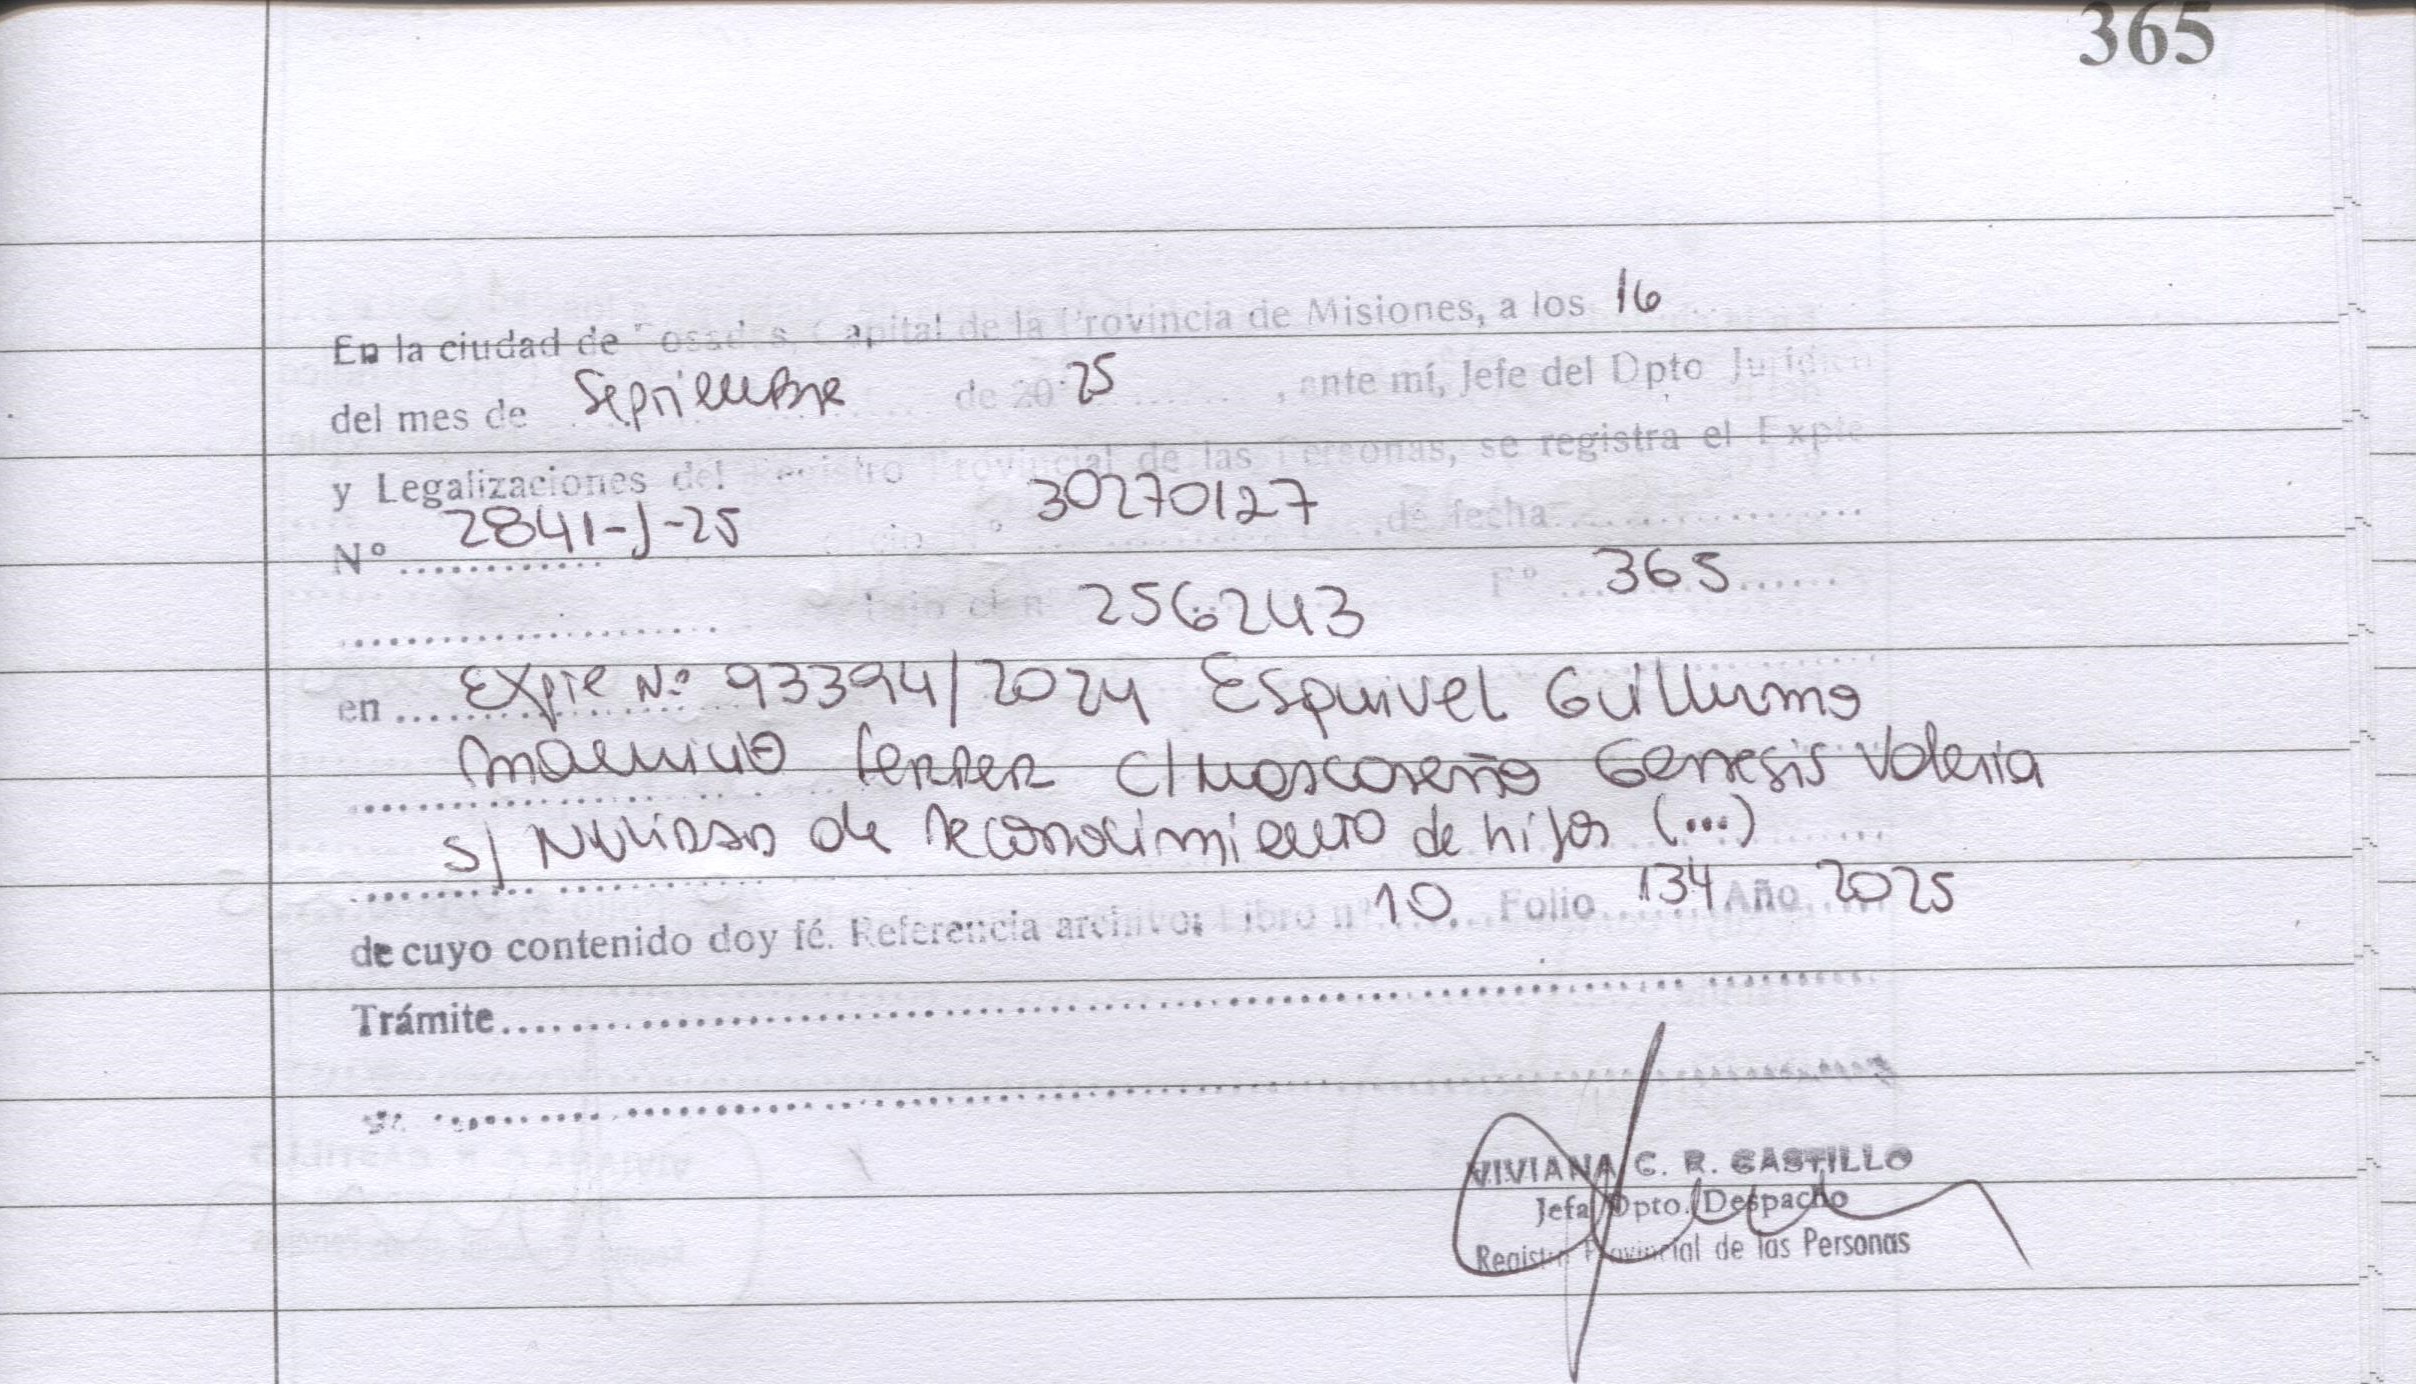 365
En la ciudad de Posadas, Capital de la Provincia de Misiones, a los 16
del mes de Septiembre de 2025, ante mí, Jefe del Dpto Jurídico
y Legalizaciones del Registro Provincial de las Personas, se registra el Expte
Nº 2841-J-25 30270127 ,de fecha
256243 Fº 365
en Expte Nº 93394/2024 Esquivel Guillermo
Ferrer c/ Moscoseño Genesis Valeria
s/ Nulidad de reconocimiento de hijos (...)
de cuyo contenido doy fé. Referencia archivo: Libro nº 10 Folio 134 Año 2025
Trámite
VIVIANA C. R. CASTILLO
Jefa Dpto. Despacho
Registro Provincial de las Personas